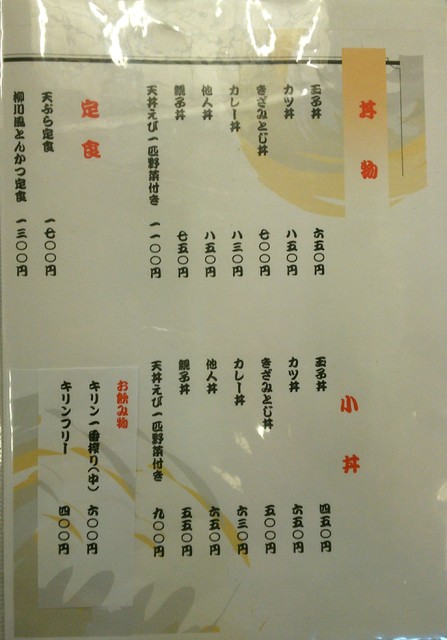 丼物
玉子丼 六五〇円
カツ丼 八五〇円
きざみとじ丼 七〇〇円
カレー丼 八三〇円
他人丼 八五〇円
親子丼 七五〇円
天丼えび一匹野菜付き 一一〇〇円
定食
天ぷら定食 一七〇〇円
柳川風とんかつ定食 一三〇〇円
小丼
玉子丼 四五〇円
カツ丼 六五〇円
きざみとじ丼 五〇〇円
カレー丼 六三〇円
他人丼 六五〇円
親子丼 五五〇円
天丼えび一匹野菜付き 九〇〇円
お飲み物
キリン一番搾り(中) 六〇〇円
キリンフリー 四〇〇円